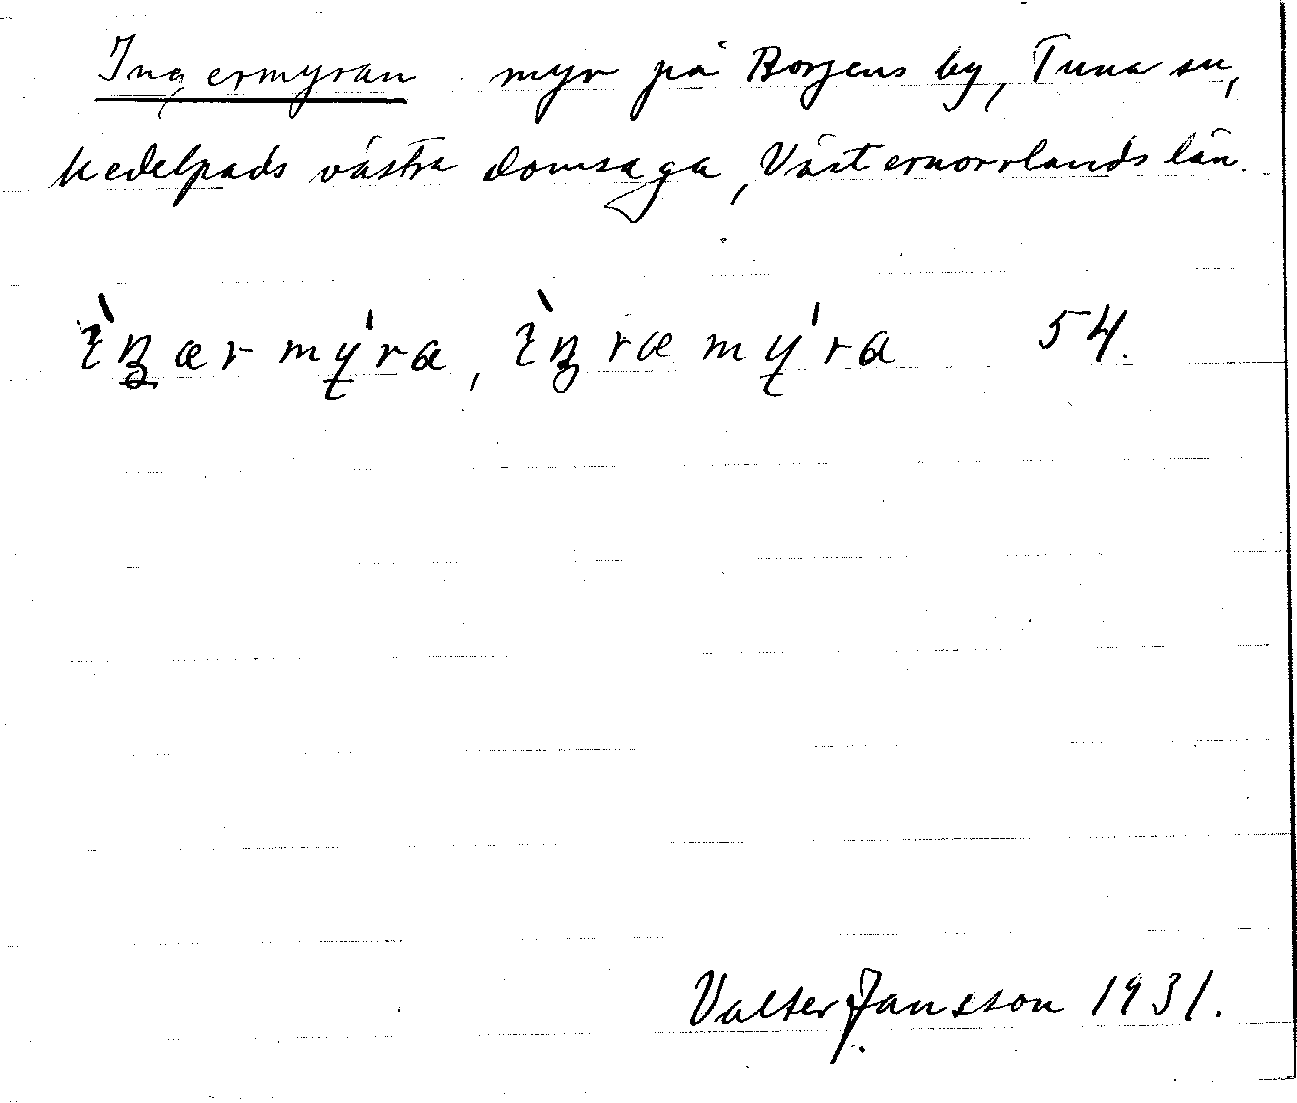 Ingermyran myr på Borgens by, Tuna sn,
Medelpads västra domsaga, Västernorrlands län.
54.
Valter Jansson 1931.